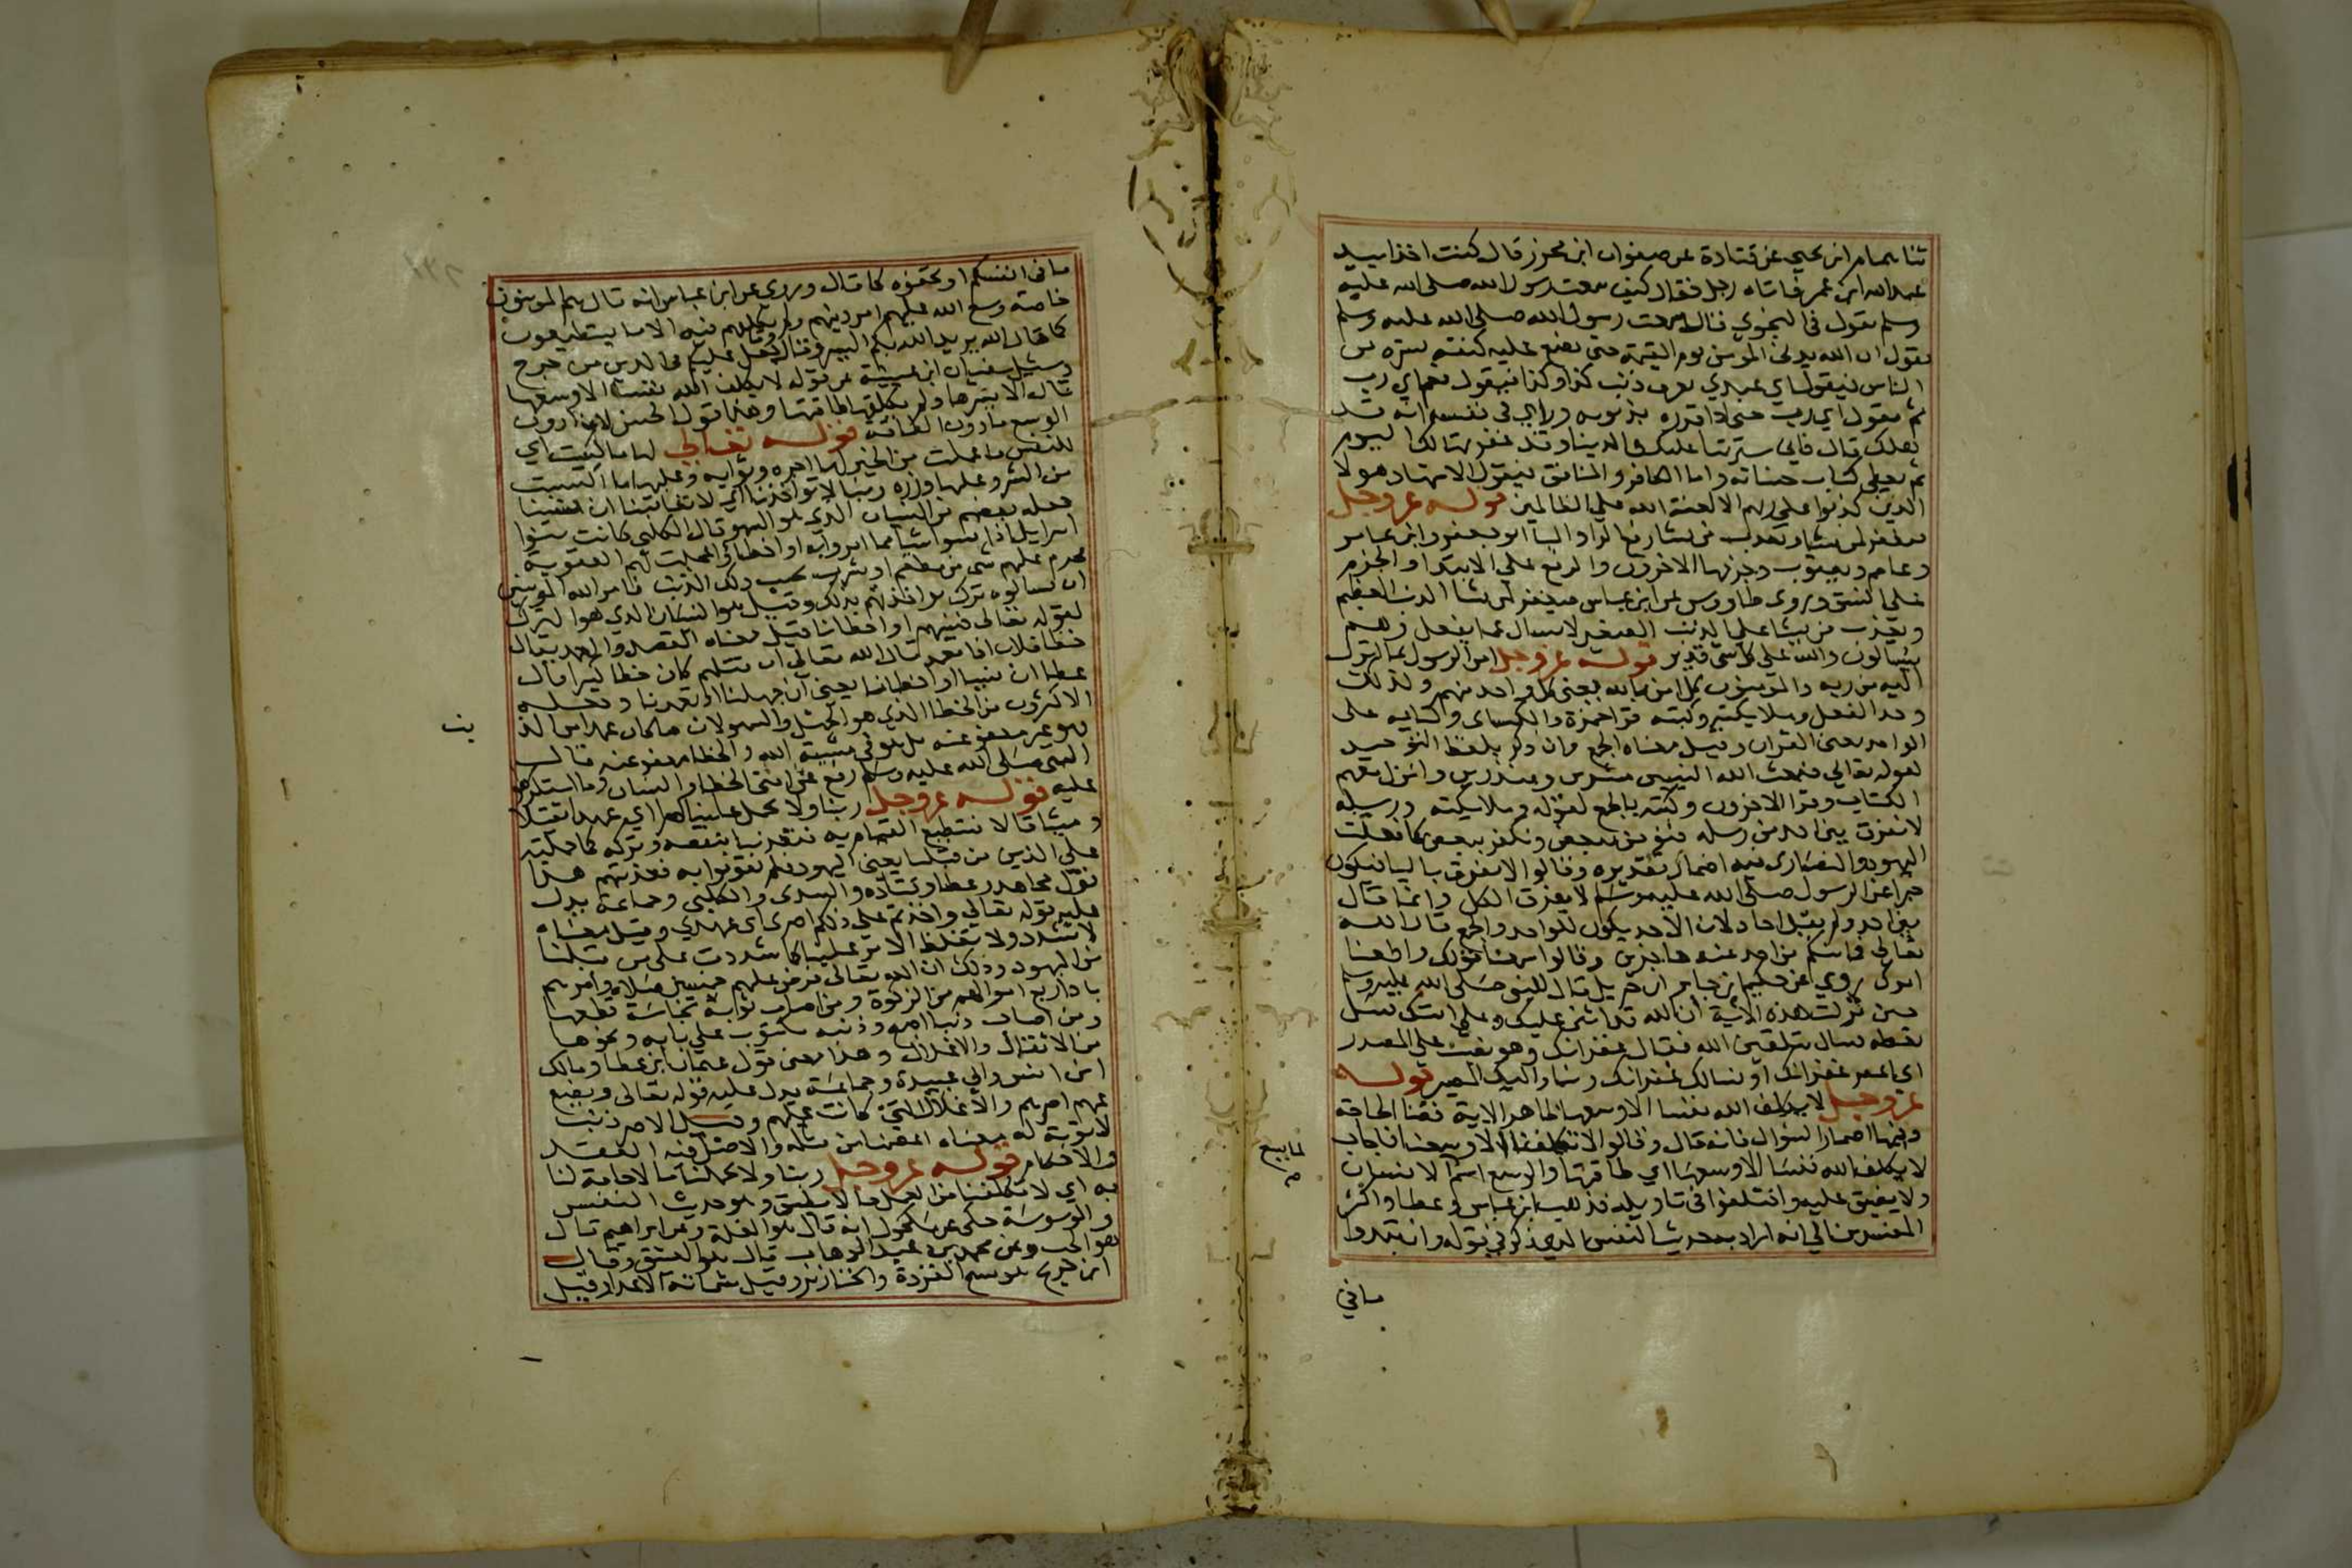 ثنا همام ابن يحيى عن قتادة عن صفوان ابن محرز قال كنت اخذا بيد
عبد الله ابن عمر فاتاه رجل فقال كيف سمعت رسول الله صلى الله عليه
وسلم يقول في النجوى قال سمعت رسول الله صلى الله عليه وسلم
يقول ان الله يدني المومن يوم القيمة حتى يضع عليه كنفه يستره من
الناس فيقول اي عبدي تعرف ذنب كذا وكذا فيقول نعم اي رب
ثم يقول اي رب حتى اذا قرره بذنوبه وراي في نفسه انه قد
هلك قال فاني سترتها عليك في الدنيا وقد غفرتها لك اليوم
ثم يعطى كتاب حسناته واما الكافر والمنافق فيقول الاشهاد هولا
الذين كذبوا على ربهم الا لعنة الله على الظالمين قوله عز وجل
فيغفر لمن يشا ويعذب من يشا رفع الرا والبا ابو جعفر وابن عامر
وعاصم ويعقوب وجزمها الاخرون والرفع على الابتدا والجزم
على النسق وروى طاووس عن ابن عباس فيغفر لمن يشا الذنب العظيم
ويعذب من يشا على الذنب الصغير لا يسال عما يفعل وهم
يسالون والله على كل شي قدير قوله عز وجل امن الرسول بما انزل
اليه من ربه والمومنون كل امن بالله يعني كل واحد منهم ولذلك
وحد الفعل وملايكته وكتبه قرا حمزة والكساى وكتابه على
الواحد يعني القران وقيل معناه الجمع وان ذكر بلفظ التوحيد
لقوله تعالى فبعث الله النبيين مبشرين ومنذرين وانزل معهم
الكتاب وقرا الاخرون وكتبه بالجمع لقوله وملايكته ورسله
لا نفرق بين احد من رسله فنؤمن ببعض ونكفر ببعض كما فعلت
اليهود والنصارى فيه اضمار تقديره وقالوا لا نفرق باليا فيكون
خبرا عن الرسول صلى الله عليه وسلم لا يفرق الكل وانما قال
بين احد ولم يقل احاد لان الاحد يكون للواحد والجمع قال الله
تعالى فما منكم من احد عنه حاجزين وقالوا سمعنا قولك واطعنا
امرك روي عن حكيم بن جابر ان جبريل قال للنبي صلى الله عليه وسلم
حين نزلت هذه الاية ان الله قد اثنى عليك وعلى امتك فسل
تعطه فسال بتلقين الله فقال غفرانك وهو نصب على المصدر
اي اغفر غفرانك او نسالك غفرانك ربنا واليك المصير قوله
عز وجل لا يكلف الله نفسا الا وسعها ظاهر الاية قضا الحاجة
وفيها اضمار السؤال فانه قال وقالوا لا تكلفنا الا وسعنا فاجاب
لا يكلف الله نفسا الا وسعها اي طاقتها والوسع اسم لما يسع الانسان
ولا يضيق عليه واختلفوا في تاويله فذهب ابن عباس وعطا واكثر
المفسرين الى انه اراد به حديث النفس الذي ذكر في قوله وان تبدوا
لما يسع
صح
ما في
ما في انفسكم او تخفوه كما قال وروي عن ابن عباس انه قال هم المومنون
خاصة وسع الله عليهم امر دينهم ولم يكلفهم فيه الا ما يستطيعون
كما قال الله يريد الله بكم اليسر وقال ما جعل عليكم في الدين من حرج
وسئل سفيان ابن عيينة عن قوله لا يكلف الله نفسا الا وسعها
قال الا يسرها ولم يكلفها طاقتها وهذا قول حسن لان
الوسع ما دون الطاقة قوله تعالى لها ما كسبت اي
للنفس ما عملت من الخير لها اجره وثوابه وعليها ما اكتسبت
من الشر وعليها وزره ربنا لا تواخذنا اي لا تعاقبنا ان نسينا
جعله بعضهم من النسيان الذي هو السهو قال الكلبي كانت بنوا
اسرايل اذا نسوا شيا مما امروا به او اخطاوا عجلت لهم العقوبة
فحرم عليهم شي من مطعم او مشرب بحسب ذلك الذنب فامر الله المومنين
ان يسالوه ترك مواخذتهم بذلك وقيل هو النسيان الذي هو الترك
لقوله تعالى فنسيهم او اخطانا قيل معناه القصد والعمد يقال
خطا فلان اذا تعمد قال الله تعالى ان قتلهم كان خطا كبيرا قال
عطا ان نسينا او اخطانا يعني ان جهلنا او تعمدنا وجعله
الاكثرون من الخطا الذي هو الجهل والسهو لان ما كان عمدا من الذنب
فهو غير معفو عنه بل هو في مشيئة الله والخطا معفو عنه قال
النبي صلى الله عليه وسلم رفع عن امتي الخطا والنسيان وما استكرهوا
عليه قوله عز وجل ربنا ولا تحمل علينا اصرا اي عهدا ثقيلا
وميثاقا لا نستطيع القيام به فتعذبنا بنقضه وتركه كما حملته
على الذين من قبلنا يعني اليهود فلم يقوموا به فعذبتهم هذا
قول مجاهد وعطا وقتادة والسدى والكلبي وجماعة يدل
عليه قوله تعالى واخذتم على ذلكم اصرى اى عهدي وقيل معناه
لا تشدد ولا تغلظ الامر علينا كما شددت على من قبلنا
من اليهود وذلك ان الله تعالى فرض عليهم خمسين صلاة وامرهم
باداربع اموالهم من الزكوة ومن اصاب ثوبه نجاسة قطعها
ومن اصاب ذنبا اصبح وذنبه مكتوب على بابه ونحوها
من الاثقال والاغلال وهذا معنى قول عثمان ابن عطا ومالك
ابن انس وابي عبيدة وجماعة يدل عليه قوله تعالى ويضع
عنهم اصرهم والاغلال التي كانت عليهم وقيل الاصر ذنب
لا توبة له معناه اعصمنا من مثله والاصل فيه العقد
والاحكام قوله عز وجل ربنا ولا تحملنا ما لا طاقة لنا
به اي لا تكلفنا من العمل ما لا نطيق وهو حديث النفس
والوسوسة حكى عن مكحول انه قال هو الغلة وعن ابراهيم قال
هو الحب وعن محمد بن عبد الوهاب قال هو العشق وقال
ابن جريج هو مسخ القردة والخنازير وقيل شماتة الاعدا وقيل